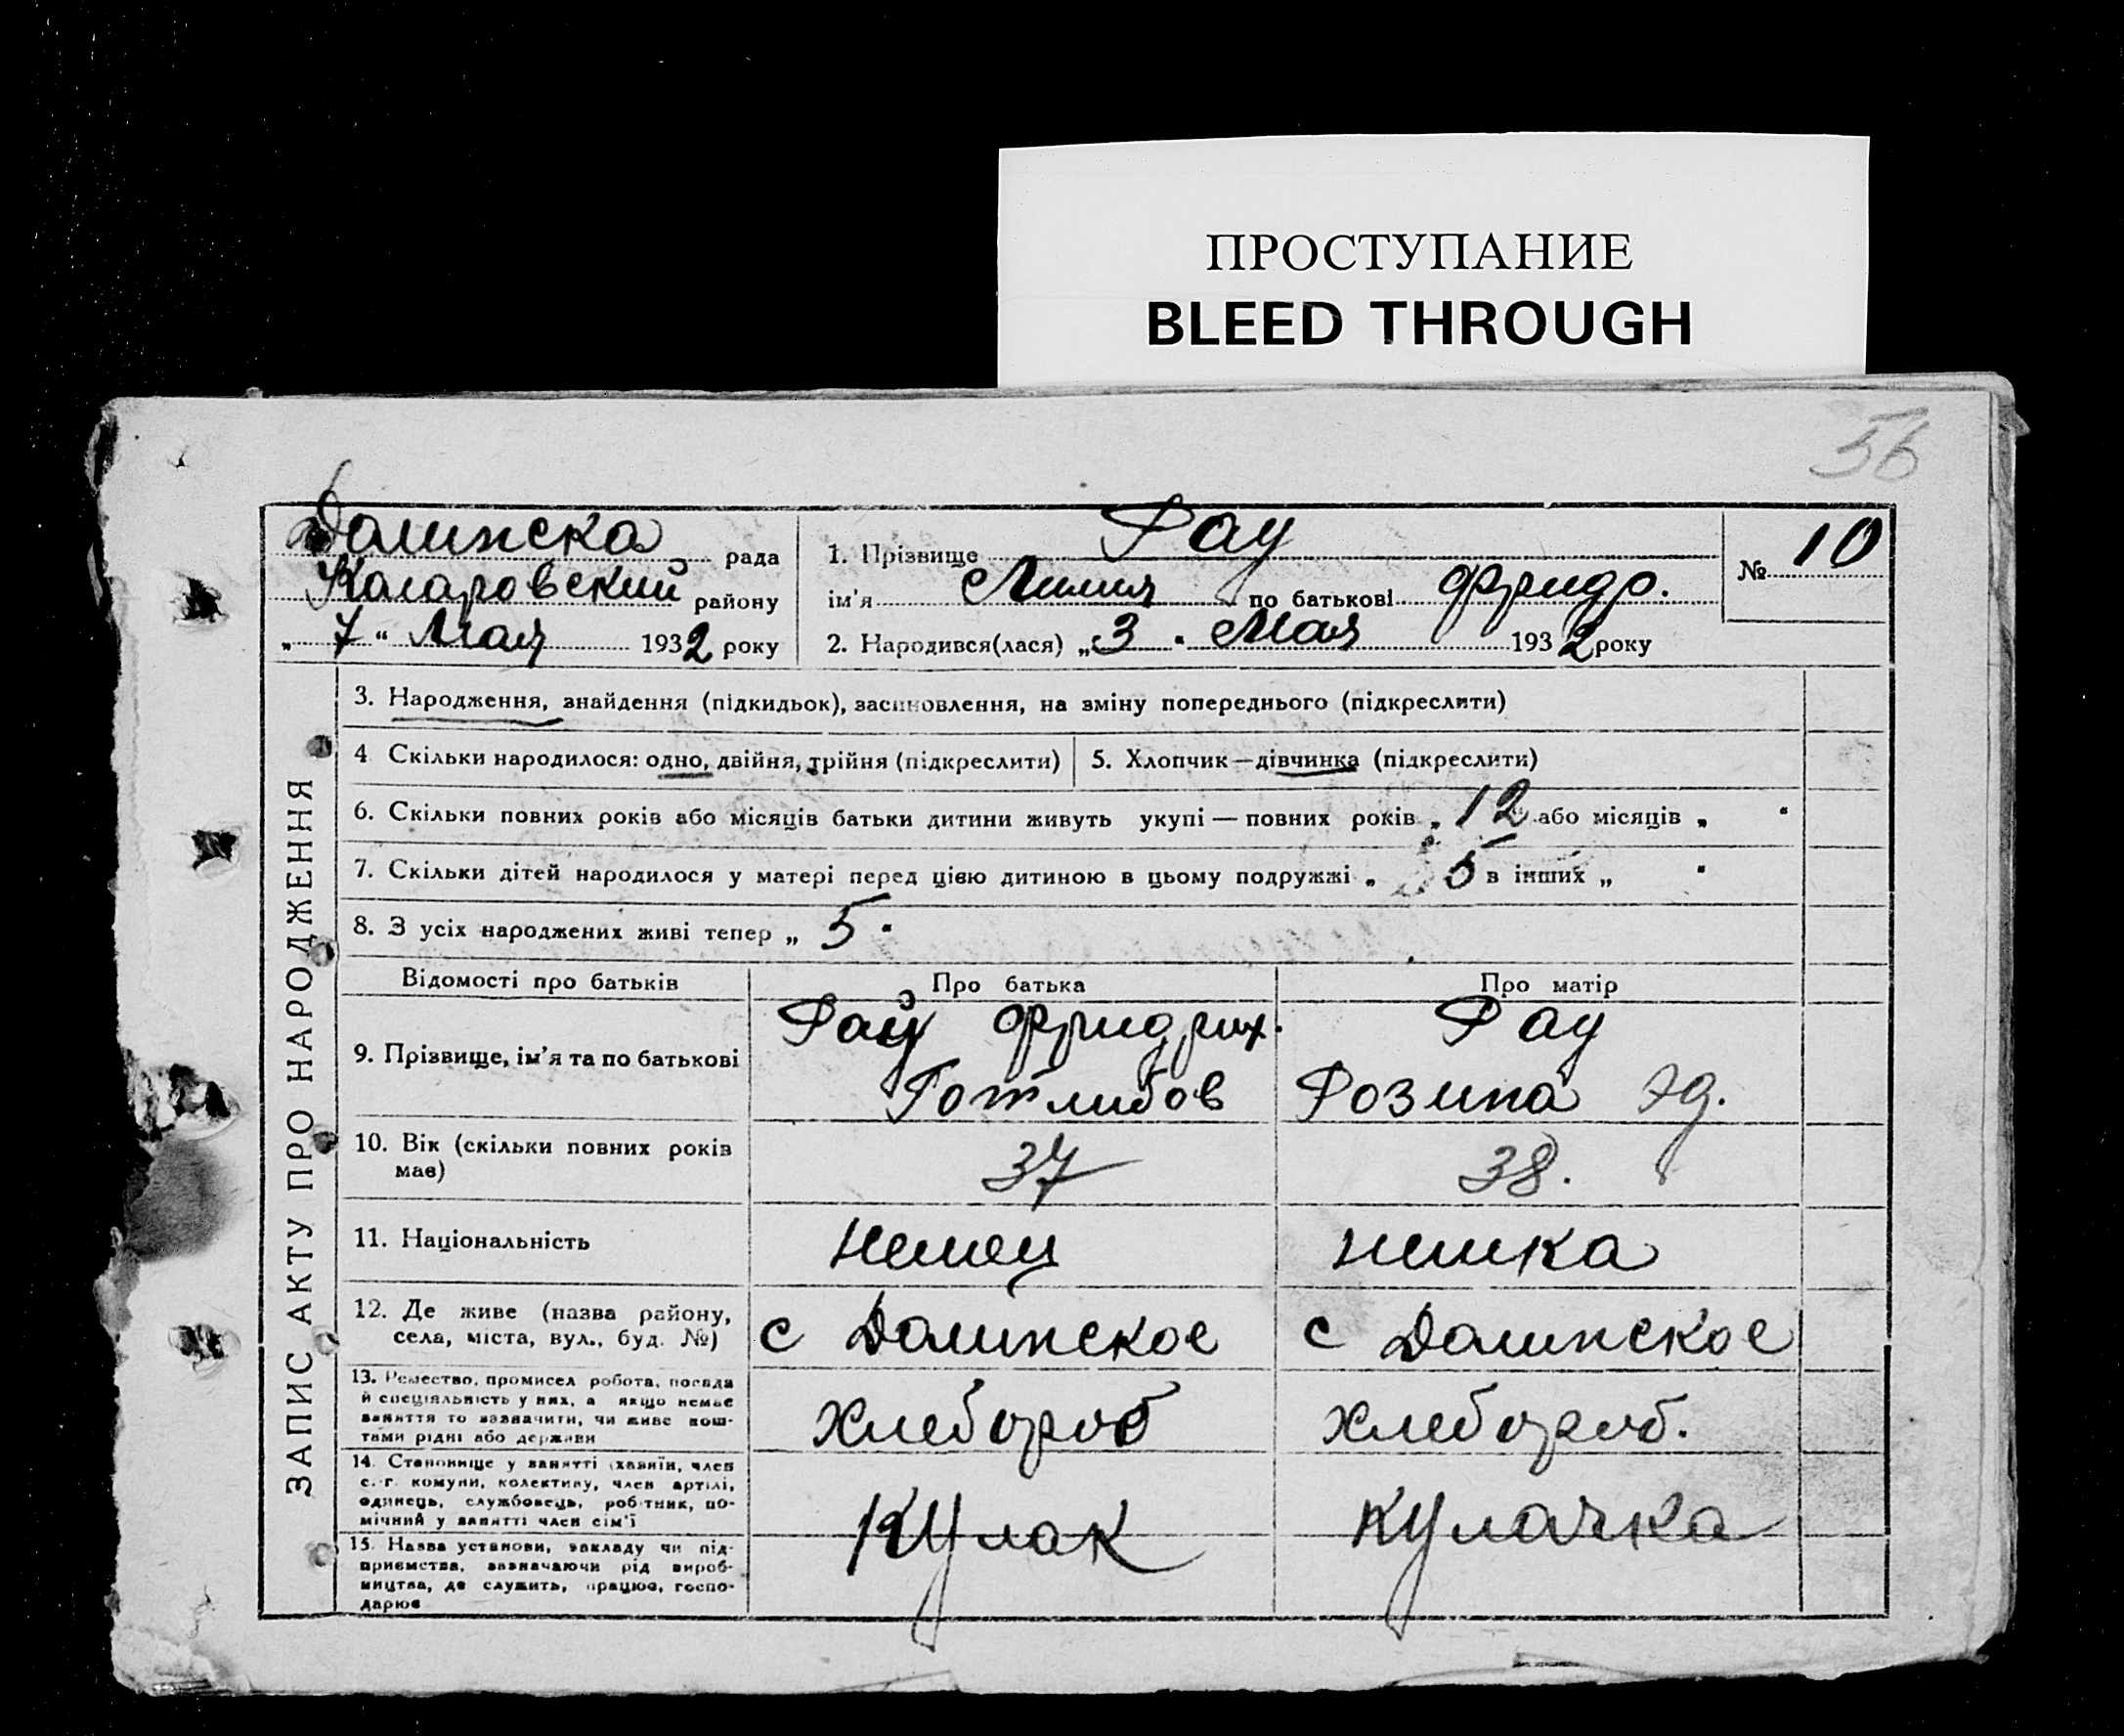 ПРОСТУПАНИЕ
BLEED THROUGH
56
Долинска рада
Коларовский району
„ 7 “ Мая 1932 року
1. Прізвище Рау
ім'я Лилия по батькові Фридр.
2. Народився(лася) „ 3 “ Мая 1932 року
№ 10
ЗАПИС АКТУ ПРО НАРОДЖЕННЯ
3. Народження, знайдення (підкидьок), засиновлення, на зміну попереднього (підкреслити)
4 Скільки народилося: одно, двійня, трійня (підкреслити)
5. Хлопчик—дівчинка (підкреслити)
6. Скільки повних років або місяців батьки дитини живуть укупі — повних років „ 12 або місяців „ “
7. Скільки дітей народилося у матері перед цією дитиною в цьому подружжі „ 5 в інших „ “
8. З усіх народжених живі тепер „ 5 “
Відомості про батьків Про батька Про матір
9. Прізвище, ім'я та по батькові
Рау Фридрих.
Готлибов
Рау
Розина Эд.
10. Вік (скільки повних років
має)
37
38.
11. Національність немец немка
12. Де живе (назва району,
села, міста, вул., буд. №)
с Долинское
с Долинское
13. Ремество, промисел робота, посада
й спеціяльність у них, а якщо немає
заняття то зазначити, чи живе кош-
тами рідні або держави
Хлебороб
Хлебороб.
14. Становище у занятті (хазяїн, член
с.-г. комуни, колективу, член артілі,
одинець, службовець, робітник, по-
мічний у занятті член сім'ї
Кулак
Кулачка
15. Назва установи, закладу чи під-
приємства, зазначаючи рід вироб-
ництва, де служить, працює, госпо-
дарює